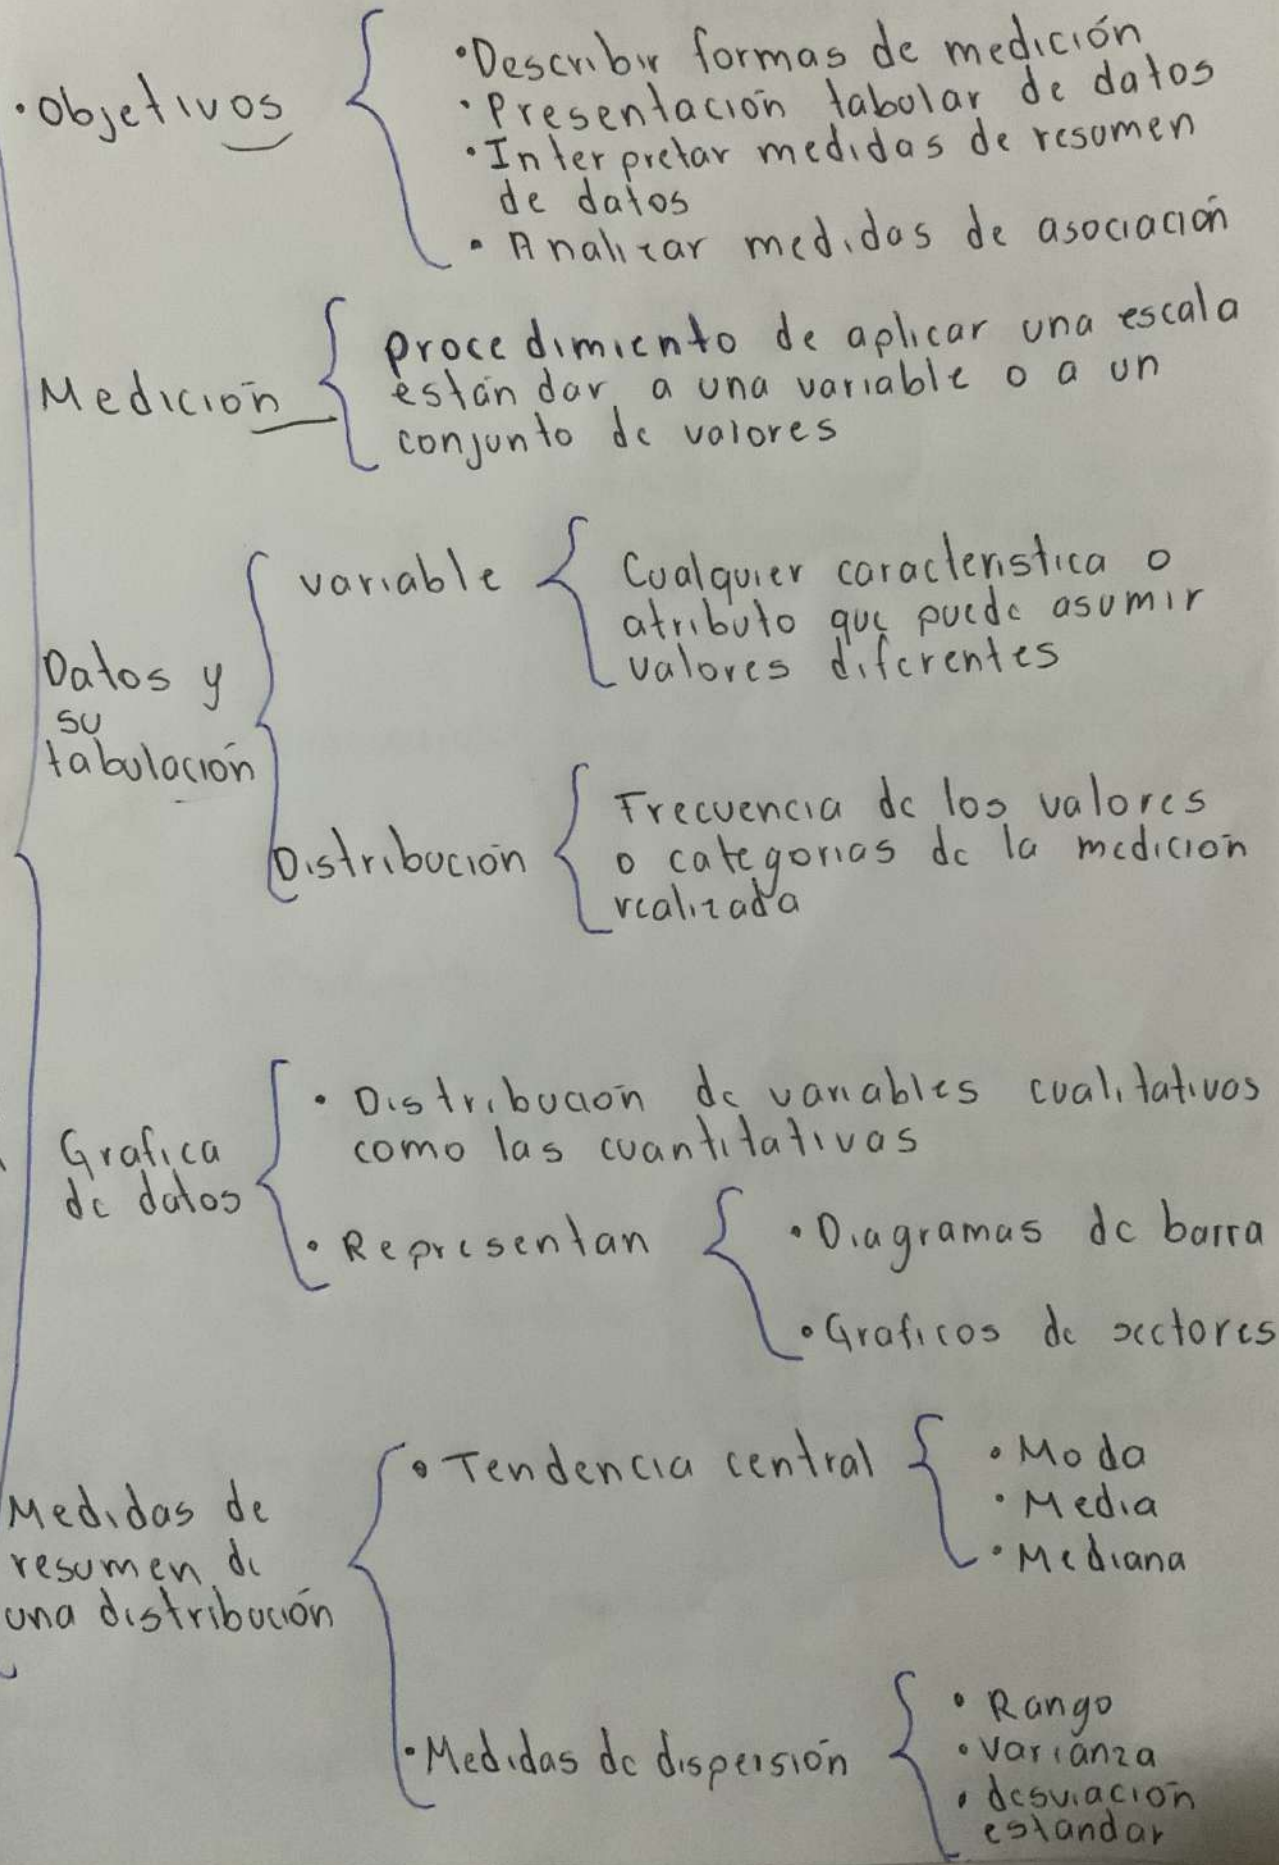 •Objetivos
•Describir formas de medición
•Presentación tabular de datos
•Interpretar medidas de resumen
de datos
•Analizar medidas de asociación
Medición
procedimiento de aplicar una escala
estándar a una variable o a un
conjunto de valores
Datos y
su
tabulación
variable
Cualquier característica o
atributo que puede asumir
valores diferentes
Distribución
Frecuencia de los valores
o categorias de la medición
realizada
Grafica
de datos
• Distribución de variables cualitativos
como las cuantitativas
• Representan
• Diagramas de barra
• Graficos de sectores
Medidas de
resumen de
una distribución
• Tendencia central
• Moda
• Media
• Mediana
• Medidas de dispersión
• Rango
• varianza
• desviación
estandar